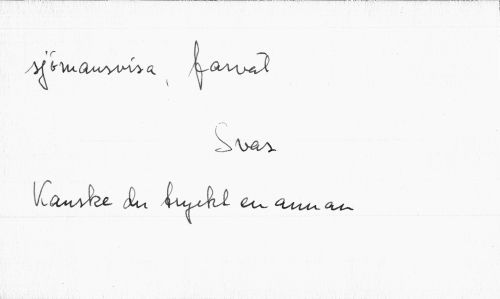 sjömansvisa, farväl
Svar
Kanske du tryckt en annan